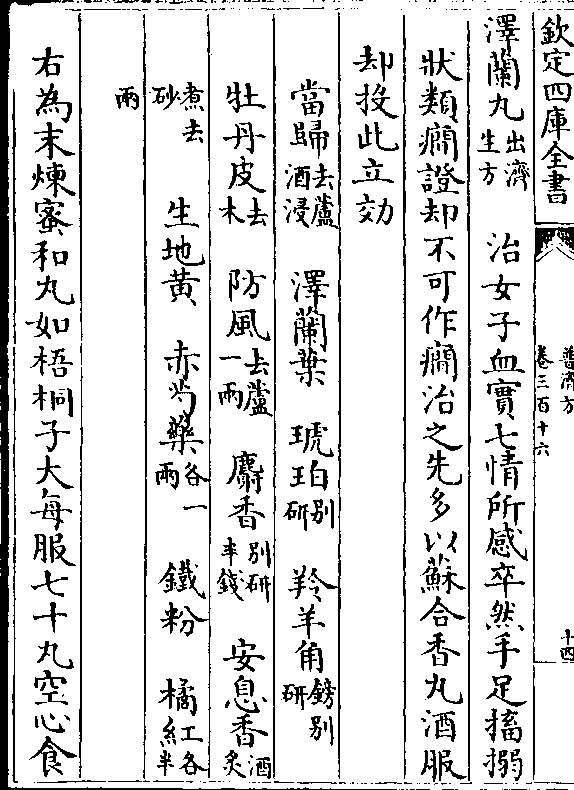 欽定四庫全書
普濟方
卷三百十六
十四
澤蘭丸出濟生方 治女子血實七情所感卒然手足搐搦
狀類癇證却不可作癇治之先多以蘇合香丸酒服
却投此立効
當歸去蘆酒浸 澤蘭葉 琥珀别研 羚羊角鎊别研
牡丹皮去木 防風去蘆一兩 麝香别研半錢 安息香酒炙
煮去砂 生地黄 赤芍藥各一兩 鐵粉 橘紅各工半
兩
右為末煉蜜和丸如梧桐子大每服七十丸空心食